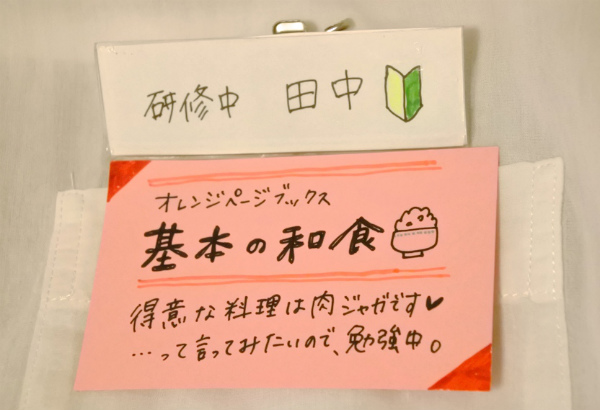 研修中 田中
オレンジページブックス
基本の和食
得意な料理は肉ジャガです♥
…って言ってみたいので、勉強中。